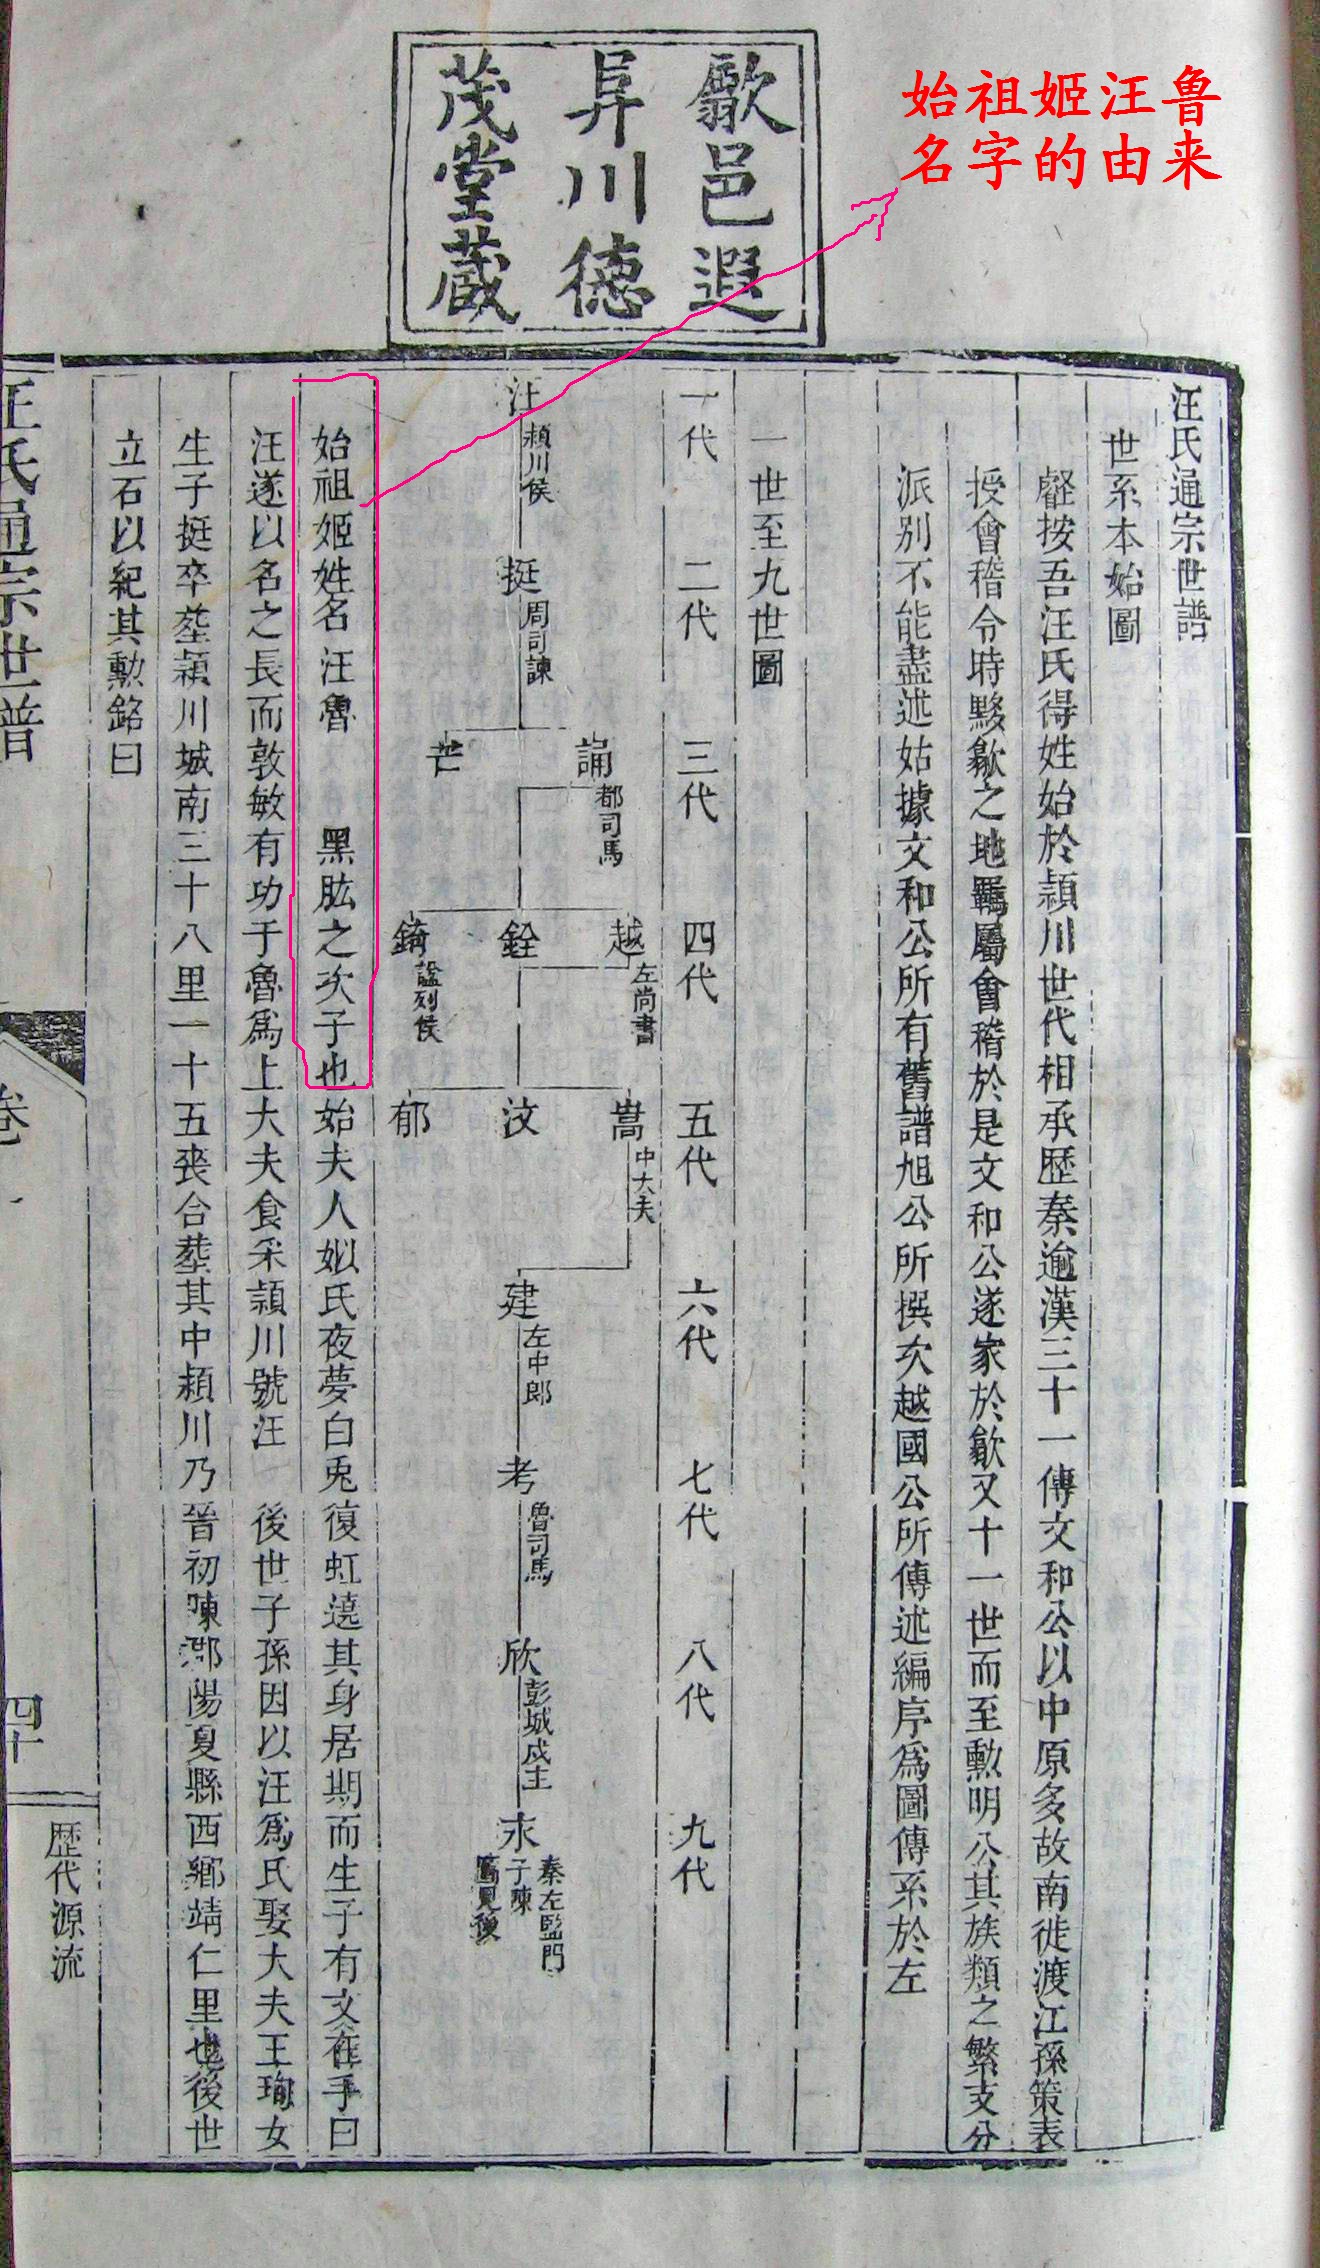 始祖姬汪鲁
名字的由来
歙邑遐
昇川德
茂堂蔵
汪氏通宗世譜
世系本始圖
叡按吾汪氏得姓始於潁川世代相承歷秦逾漢三十一傳文和公以中原多故南徙渡江孫策表
授會稽令時黟歙之地羈屬會稽於是文和公遂家於歙又十一世而至勲明公其族類之繁支分
派別不能盡述姑據文和公所有舊譜旭公所撰次越國公所傳述編序爲圖傳系於左
一世至九世圖
一代 二代 三代 四代 五代 六代 七代 八代 九代
汪 潁川侯
挺 周司諫
誦 都司馬
芒
越 左尚書
銓
錡 諡列侯
嵩 中大夫
汶
郁
建 左中郎
考 魯司馬
欣 彭城戍主
末 秦左監門
子陳
見後
始祖姬姓名汪魯 黑肱之次子也始夫人姒氏夜夢白兎復虹遶其身居期而生子有文在手曰
汪遂以名之長而敦敏有功于魯爲上大夫食采潁川號汪 後世子孫因以汪爲氏娶大夫王珣女
生子挺卒塟潁川城南三十八里一十五喪合塟其中潁川乃晉初陳郡陽夏縣西鄉靖仁里也後世
立石以紀其勲銘曰
汪氏通宗世譜
卷一
四十
歷代源流